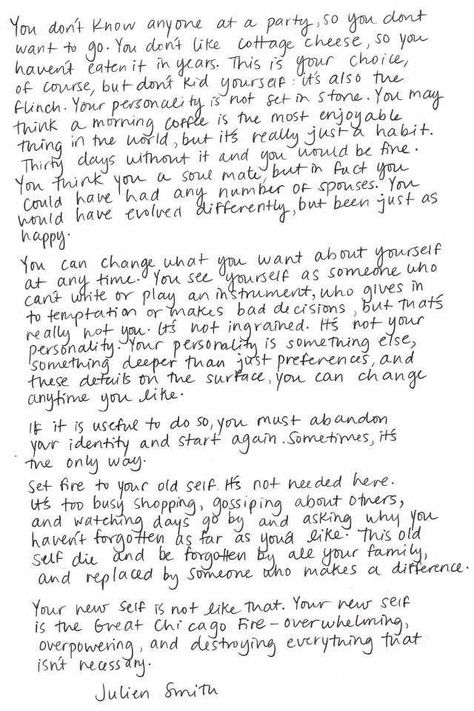 You don't know anyone at a party, so you dont
want to go. You don't like cottage cheese, so you
haven't eaten it in years. This is your choice,
of course, but don't kid yourself: it's also the
flinch. Your personality is not set in stone. You may
think a morning coffee is the most enjoyable
thing in the world, but it's really just a habit.
Thirty days without it and you would be fine.
You think you a soul mate, but in fact you
could have had any number of spouses. You
would have evolved differently, but been just as
happy.
You can change what you want about yourself
at any time. You see yourself as someone who
can't write or play an instrument, who gives in
to temptation or makes bad decisions, but that's
really not you. It's not ingrained. It's not your
personality. Your personality is something else,
something deeper than just preferences, and
these details on the surface, you can change
anytime you like.
If it is useful to do so, you must abandon
your identity and start again. Sometimes, it's
the only way.
Set fire to your old self. It's not needed here.
It's too busy shopping, gossiping about others,
and watching days go by and asking why you
haven't forgotten as far as you'd like. This old
self die and be forgotten by all your family,
and replaced by someone who makes a difference.
Your new self is not like that. Your new self
is the Great Chicago Fire - overwhelming,
overpowering, and destroying everything that
isn't necessary.
Julien Smith